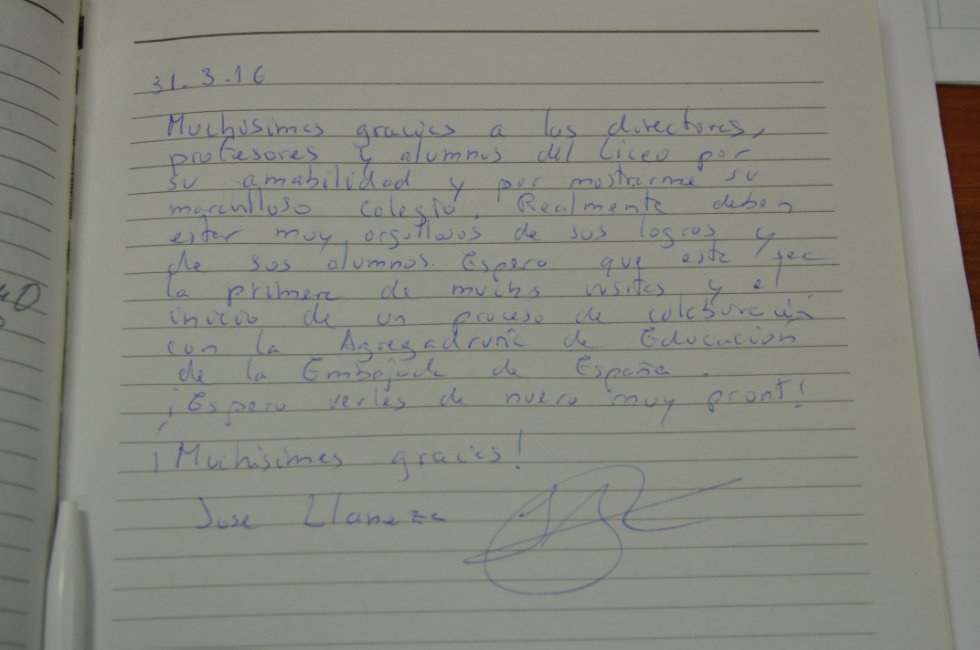 31.3.16
Muchísimas gracias a los directores,
profesores y alumnos del Liceo por
su amabilidad y por mostrarme su
maravilloso colegio. Realmente deben
estar muy orgullosos de sus logros y
de sus alumnos. Espero que esta sea
la primera de muchas visitas y el
inicio de un proceso de colaboración
con la Agregaduría de Educación
de la Embajada de España.
¡Espero verles de nuevo muy pronto!
¡Muchísimas gracias!
Jose Llaneza